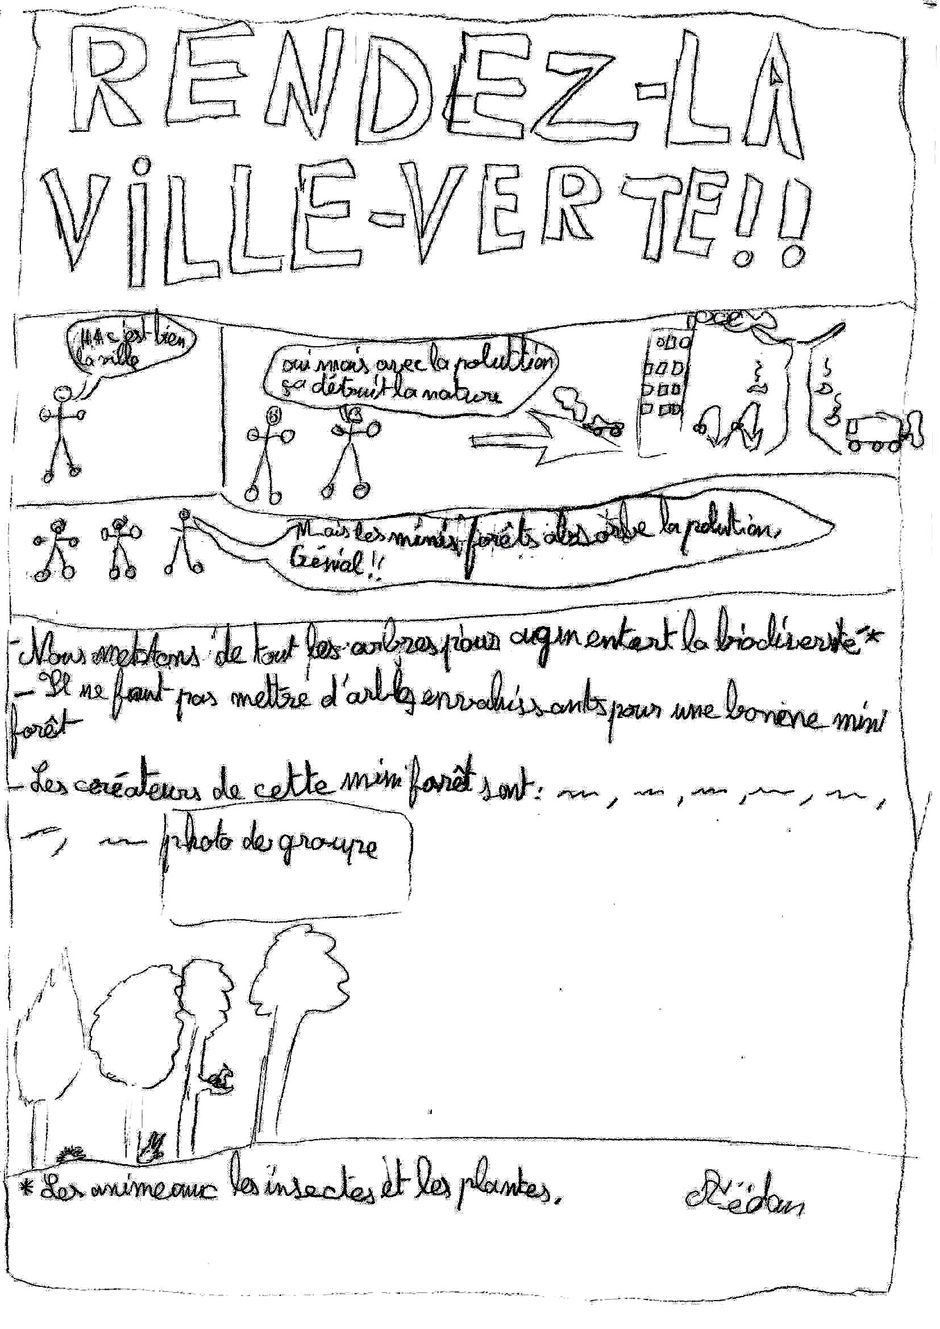 RENDEZ-LA
ViLLE-VERTE!!
c'est bien
la ville
oui mais avec la poluttion
ça détruit la nature
Mais les minis forêts absorbe la polution,
Génial!!
- Nous mettons de tout les arbres pour augmentert la biodiversité*
- Il ne faut pas mettre d'arbres envahissants pour une bonne mini
forêt
- Les créateurs de cette mini forêt sont:
photo de groupe
* Les animeaux les insectes et les plantes.